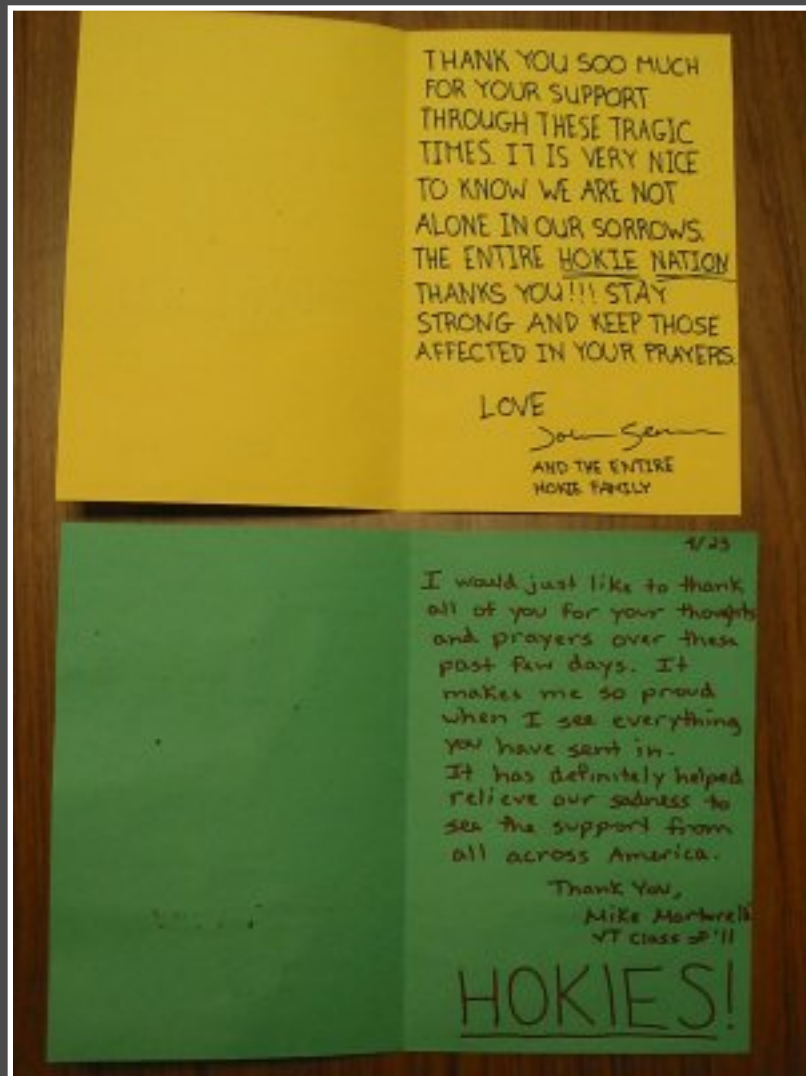 THANK YOU SOO MUCH
FOR YOUR SUPPORT
THROUGH THESE TRAGIC
TIMES. IT IS VERY NICE
TO KNOW WE ARE NOT
ALONE IN OUR SORROWS.
THE ENTIRE HOKIE NATION
THANKS YOU!!! STAY
STRONG AND KEEP THOSE
AFFECTED IN YOUR PRAYERS.
LOVE
AND THE ENTIRE
HOKIE FAMILY
4/23
I would just like to thank
all of you for your thoughts
and prayers over these
past few days. It
makes me so proud
when I see everything
you have sent in.
It has definitely helped
relieve our sadness to
see the support from
all across America.
Thank You,
Mike
VT Class of '11
HOKIES!